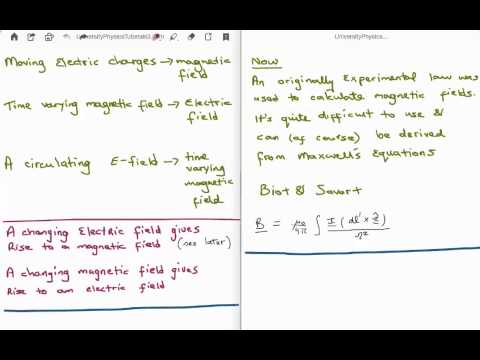 UniversityPhysicsTutorials3.com
Moving Electric charges → magnetic
field
Time varying magnetic field → Electric
field
A circulating E-field → time
varying
magnetic
field
A changing Electric field gives
Rise to a magnetic field (see later)
A changing magnetic field gives
Rise to an electric field
UniversityPhysics...
Now
An originally Experimental law was
used to calculate magnetic fields.
It's quite difficult to use &
can (of course) be derived
from Maxwell's Equations
Biot & Savart
B = μ0/4π ∫ I (dl' × r̂)/r²